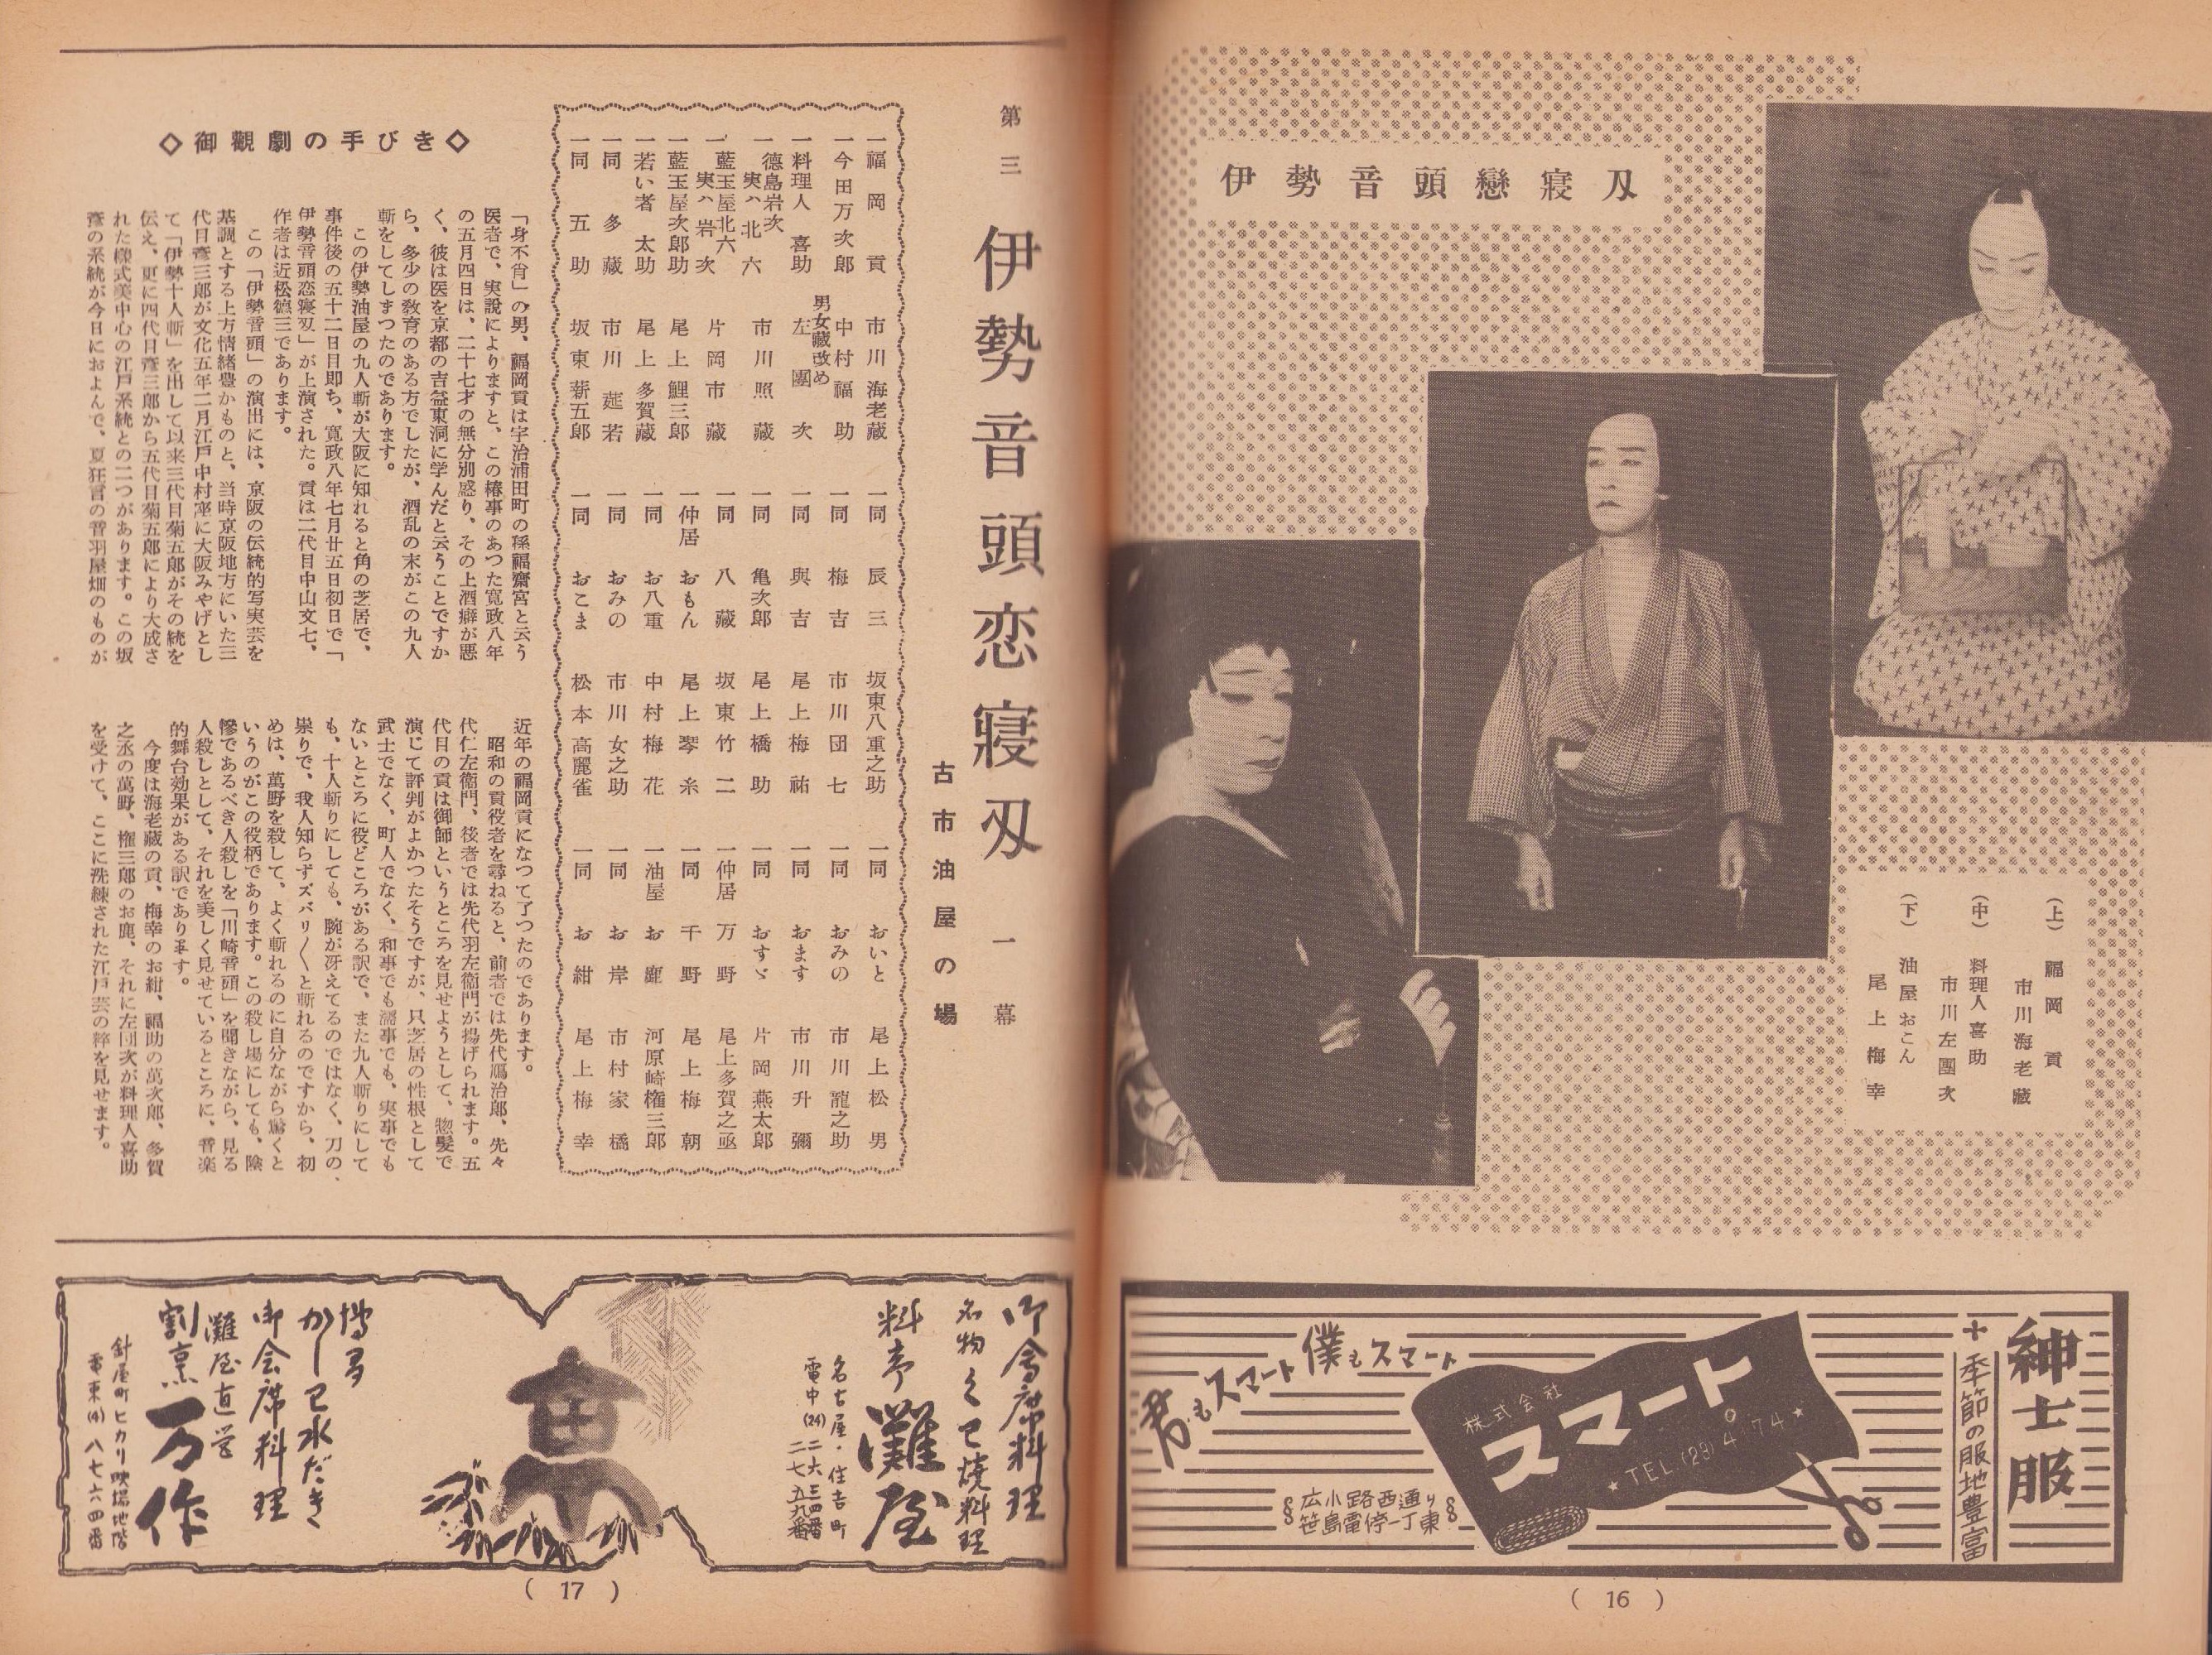 伊勢音頭戀寢刃
(上) 福岡貢
市川海老藏
(中) 料理人喜助
市川左團次
(下) 油屋おこん
尾上梅幸
紳士服
季節の服地豊富
株式会社
スマート
★TEL.(23)4174★
君もスマート僕もスマート
広小路西通り
笹島電停一丁東
( 16 )
第三 伊勢音頭恋寝刃 一幕
古市油屋の場
一福岡貢 市川海老藏
一今田万次郎 中村福助
男女藏改め
一料理人喜助 左團次
一徳島岩次
実ハ北六 市川照藏
一藍玉屋北六
実ハ岩次 片岡市藏
一藍玉屋次郎助 尾上鯉三郎
一若い者太助 尾上多賀藏
一同多藏 市川莚若
一同五助 坂東薪五郎
一同辰三 坂東八重之助
一同梅吉 市川団七
一同與吉 尾上梅祐
一同亀次郎 尾上橋助
一同八藏 坂東竹二
一仲居おもん 尾上琴糸
一同お八重 中村梅花
一同おみの 市川女之助
一同おこま 松本高麗雀
一同おいと 尾上松男
一同おみの 市川龍之助
一同おます 市川升彌
一同おすゞ 片岡燕太郎
一仲居万野 尾上多賀之丞
一同千野 尾上梅朝
一油屋お鹿 河原崎権三郎
一同お岸 市村家橘
一同お紺 尾上梅幸
◇御觀劇の手びき◇
「身不肖」の男、福岡貢は宇治浦田町の孫福齋宮と云う
医者で、実説によりますと、この椿事のあつた寛政八年
の五月四日は、二十七才の無分別盛り、その上酒癖が悪
く、彼は医を京都の吉益東洞に学んだと云うことですか
ら、多少の教育のある方でしたが、酒乱の末がこの九人
斬をしてしまつたのであります。
この伊勢油屋の九人斬が大阪に知れると角の芝居で、
事件後の五十二日目即ち、寛政八年七月廿五日初日で「
伊勢音頭恋寝刃」が上演された。貢は二代目中山文七、
作者は近松徳三であります。
この「伊勢音頭」の演出には、京阪の伝統的写実芸を
基調とする上方情緒豊かものと、当時京阪地方にいた三
代目彦三郎が文化五年二月江戸中村座に大阪みやげとし
て「伊勢十人斬」を出して以来三代目菊五郎がその統を
伝え、更に四代目彦三郎から五代目菊五郎により大成さ
れた様式美中心の江戸系統との二つがあります。この坂
彦の系統が今日におよんで、夏狂言の音羽屋畑のものが
近年の福岡貢になつて了つたのであります。
昭和の貢役者を尋ねると、前者では先代鴈治郎、先々
代仁左衞門、後者では先代羽左衞門が揚げられます。五
代目の貢は御師というところを見せようとして、惣髪で
演じて評判がよかつたそうですが、只芝居の性根として
武士でなく、町人でなく、和事でも濡事でも、実事でも
ないところに役どころがある訳で、また九人斬りにして
も、十人斬りにしても、腕が冴えてるのではなく、刀の、
祟りで、我人知らずズバリ〱と斬れるのですから、初
めは、萬野を殺して、よく斬れるのに自分ながら驚くと
いうのがこの役柄であります。この殺し場にしても、陰
惨であるべき人殺しを「川崎音頭」を聞きながら、見る
人殺しとして、それを美しく見せているところに、音楽
的舞台効果がある訳であります。
今度は海老藏の貢、梅幸のお紺、福助の萬次郎、多賀
之丞の萬野、権三郎のお鹿、それに左団次が料理人喜助
を受けて、ここに洗練された江戸芸の粋を見せます。
御會席料理
名物
燒料理
料亭 灘屋
名古屋・住吉町
電中(24)
博多
水だき
御会席料理
灘屋直営
割烹 万作
針屋町ヒカリ吹場地階
電東(4)八七六四番
( 17 )